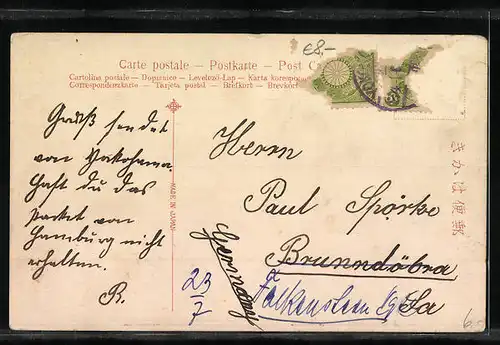 €8,-
Carte postale — Postkarte — Post
Cartolina postale — Dopisnice — Levelezö-Lap — Karta korespon
Correspondenzkarte — Tarjeta postal — Brefkort — Brevkort
Gruß sendet
von Yokohama.
Hast du das
Packet von
Hamburg nicht
erhalten.
R.
MADE IN JAPAN
Herrn
Paul Spörke
Brunndöbra
Germany
Falkenstein
Sa
23/7
きかは便郵
6.-